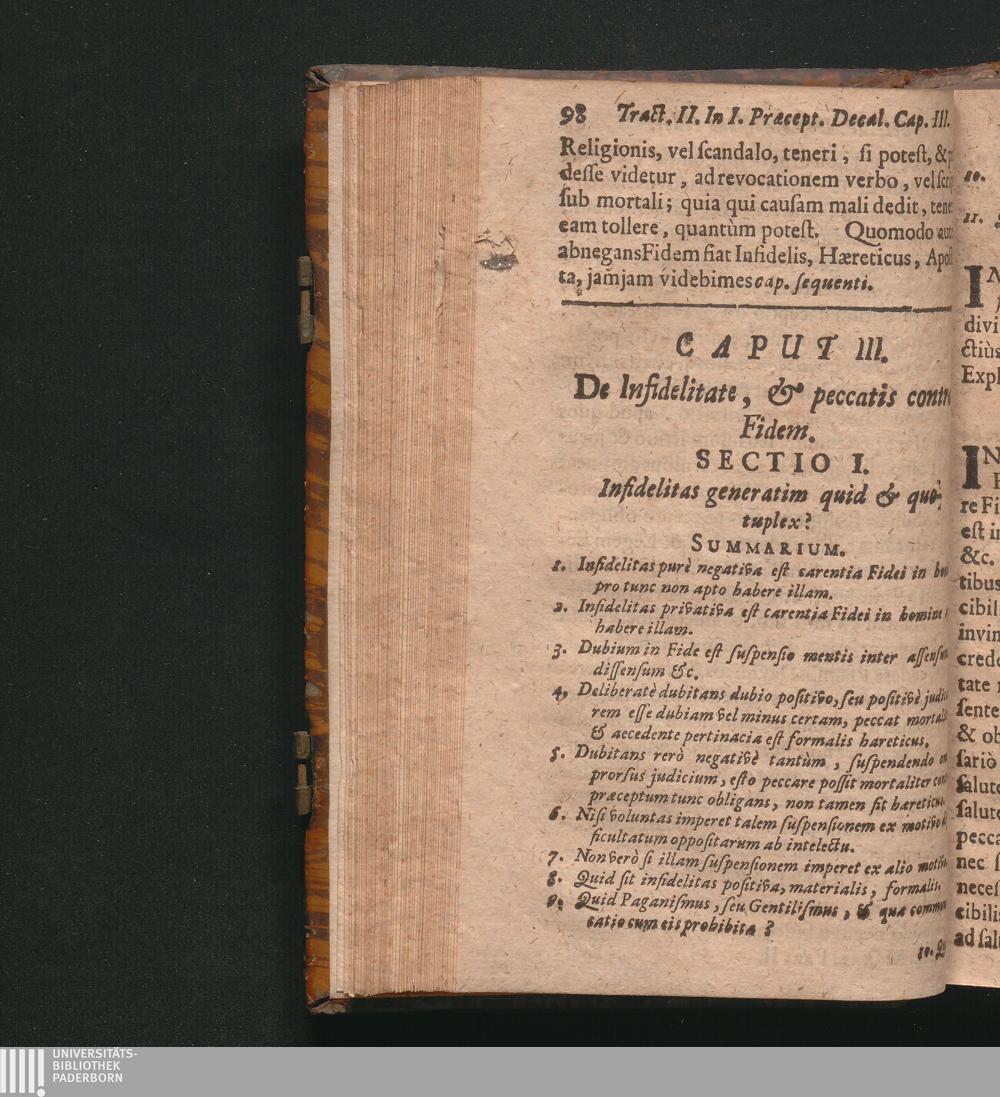 98 Tract. II. In I. Præcept. Decal. Cap. III.
Religionis, vel ſcandalo, teneri, ſi poteſt, &
deſſe videtur, ad revocationem verbo, vel
ſub mortali; quia qui cauſam mali dedit,
eam tollere, quantùm poteſt. Quomodo
abnegansFidem fiat Infidelis, Hæreticus,
ta, jamjam videbimes cap. ſequenti.
CAPUT III.
De Infidelitate, & peccatis
Fidem.
SECTIO I.
Infidelitas generatim quid & quo-
tuplex?
SUMMARIUM.
1. Infidelitas purè negativa eſt carentia Fidei in
pro tunc non apto habere illam.
2. Infidelitas privativa eſt carentia Fidei in homine
habere illam.
3. Dubium in Fide eſt ſuſpenſio mentis inter
diſſenſum &c.
4, Deliberatè dubitans dubio poſitivo, ſeu poſitivè
rem eſſe dubiam vel minus certam, peccat
& aecedente pertinacia eſt formalis hareticus,
5. Dubitans rerò negativè tantùm, ſuſpendendo
prorſus judicium, eſto peccare poſſit mortaliter
præceptum tunc obligans, non tamen ſit
6. Niſi voluntas imperet talem ſuſpenſionem ex motivo
ficultatum oppoſitarum ab intelectu.
7. Non verò ſi illam ſuſpenſionem imperet ex alio
8. Quid ſit infidelitas poſitiva, materialis,
9. Quid Paganiſmus, ſeu Gentiliſmus, & qua
catio cum eis prohibita?
10.
10.
11.
divi
ctiùs
Expl
IN
re Fi
eſt in
&c.
tibus
cibil
invin
crede
tate
ſente
& ob
ſariò
ſalute
ſalute
pecca
nec
neceſ
cibilis
ad ſal
UNIVERSITÄTS-
BIBLIOTHEK
PADERBORN